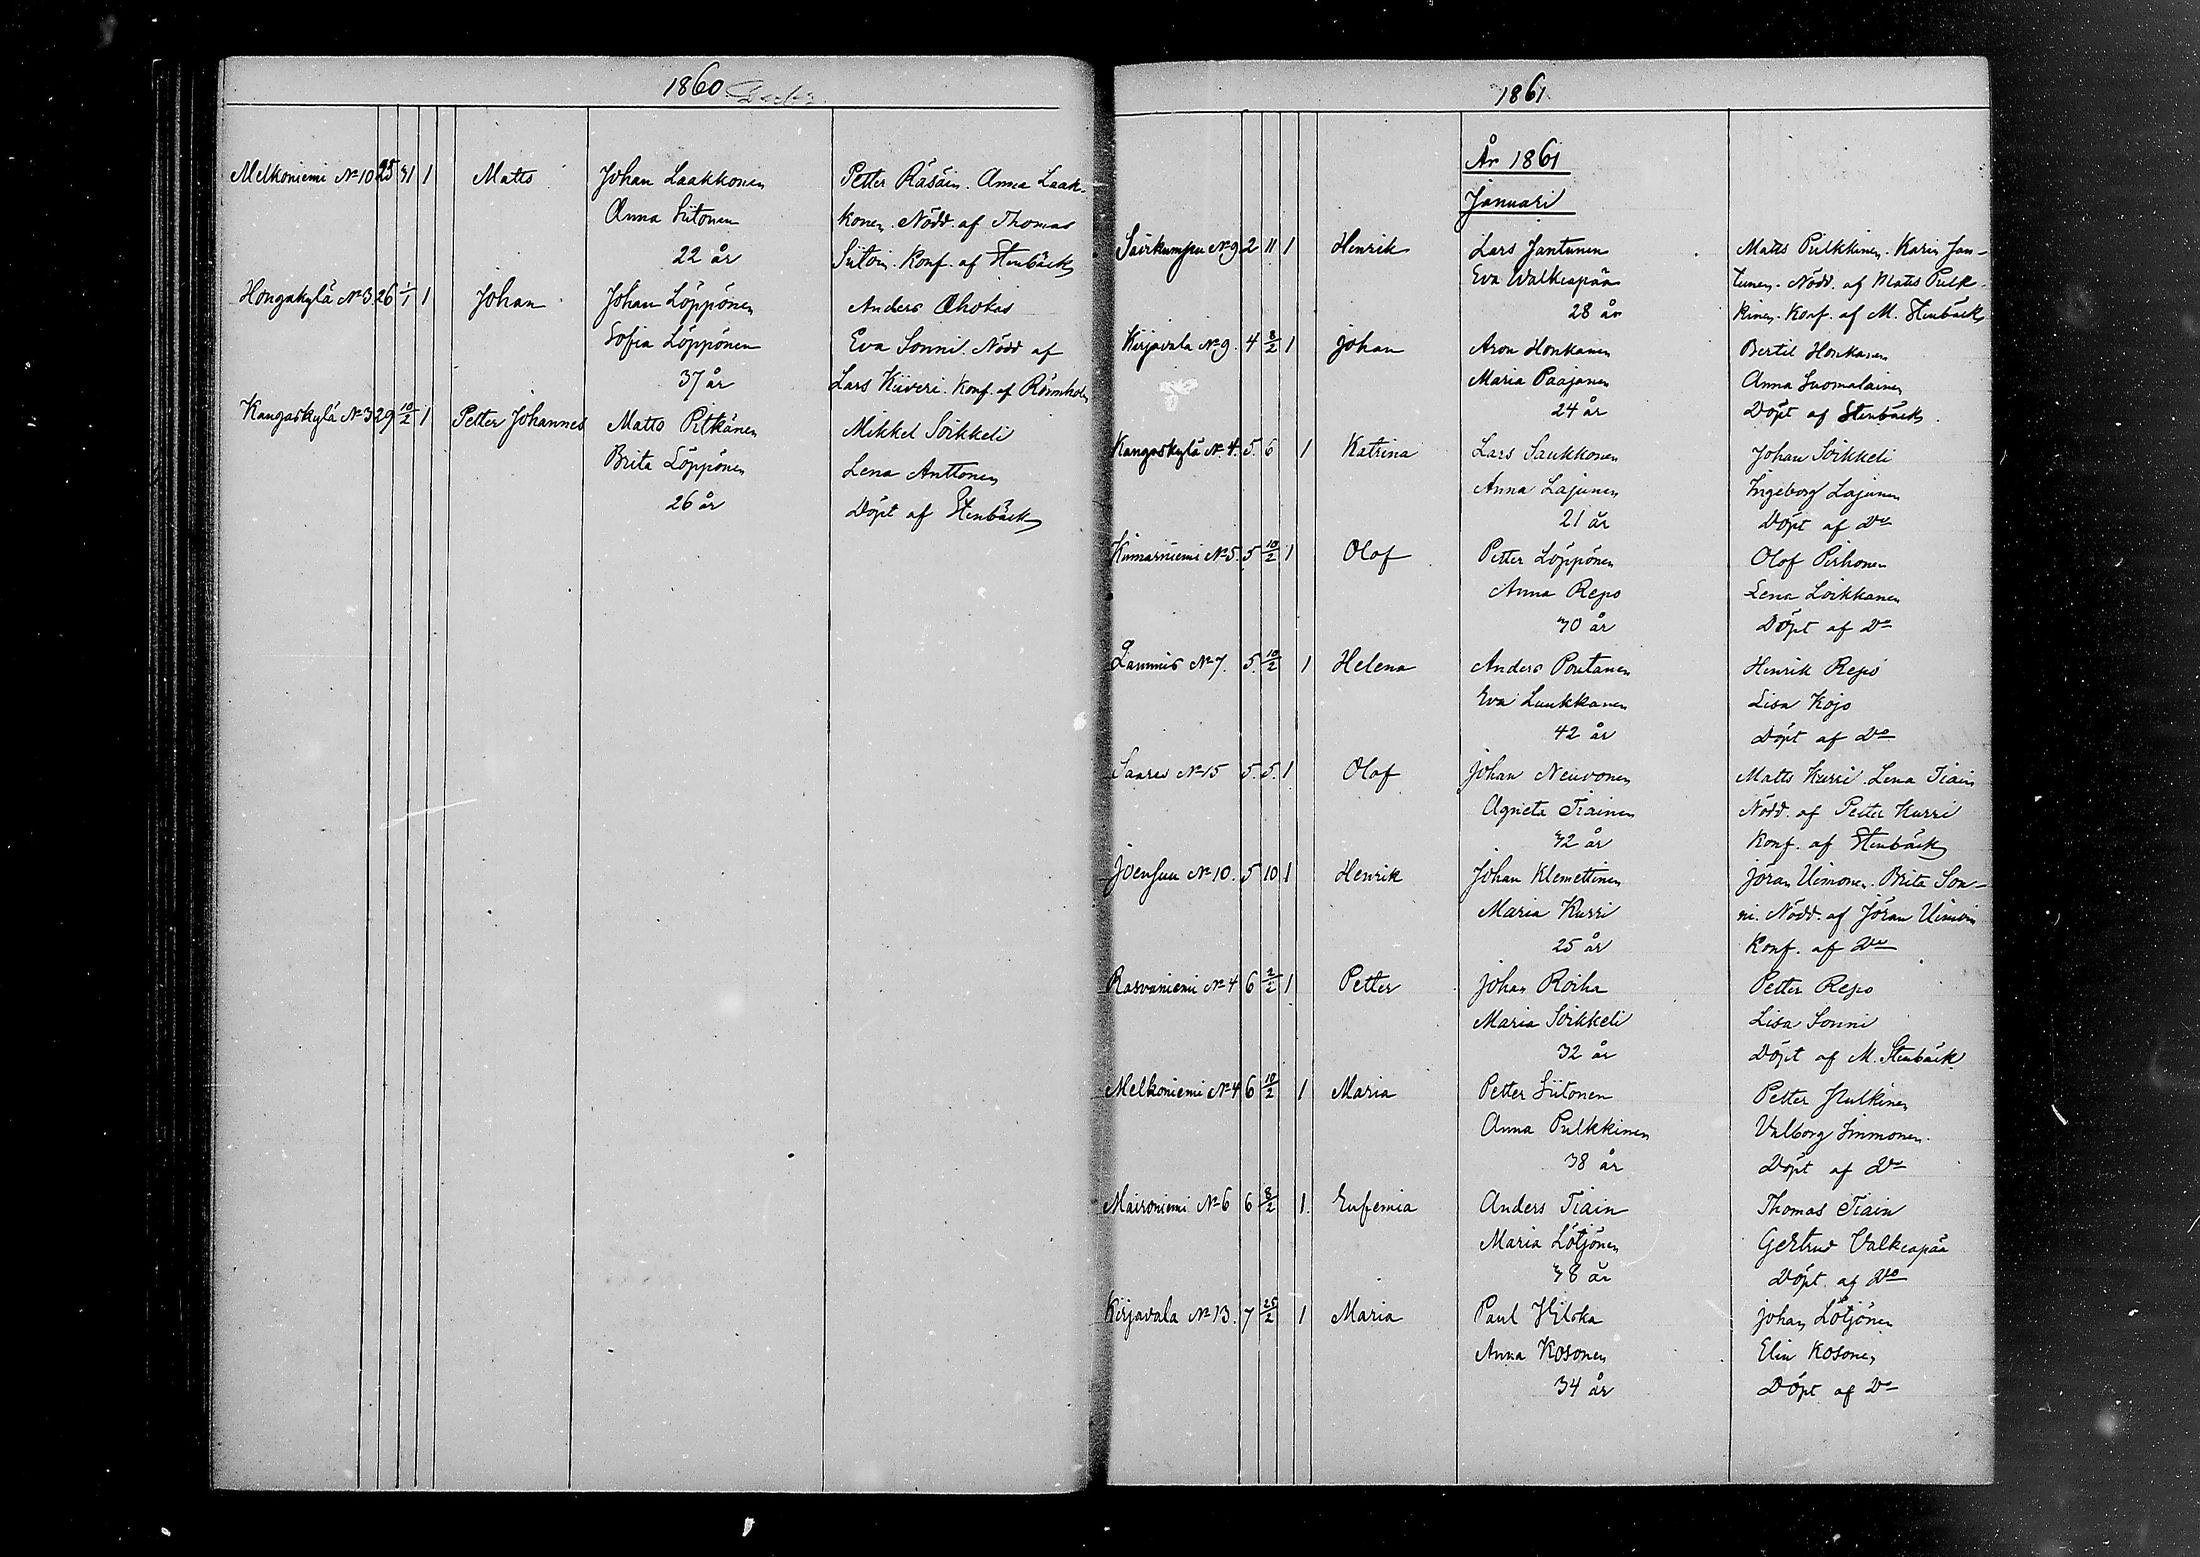 1860
Melkoniemi No 10 25 31 1 Matts Johan Laakkonen Petter Räsäin. Anna Laak-
Anna Siitonen konen. Nödd. af Thomas
22 år Siitoin. Konf. af Stenbäck
Hongakylä No 3 26 1/1 1 Johan Johan Löppönen Anders Ahokas
Sofia Löppönen Eva Sonni. Nödd af
37 år Lars Kiiveri. Konf. af Rönnholm
Kangaskylä No 3 29 10/2 1 Petter Johannes Matts Pitkänen Mikkel Soikkeli
Brita Löppönen Lena Anttonen
26 år Döpt af Stenbäck
1861
År 1861
Januari
Särkumpu No 9 2 11 1 Henrik Lars Jantunen Matts Pulkkinen. Karin Jan-
Eva Walkeapää tunen. Nödd. af Matts Pulk-
28 år kinen. Konf. af M. Stenbäck
Kirjavala No 9. 4 8/2 1 Johan Aron Honkanen Bertil Honkanen
Maria Paajanen Anna Suomalainen
24 år Döpt af Stenbäck.
Kangaskylä No. 4. 5. 6 1 Katrina Lars Saukkonen Johan Soikkeli
Anna Lajunen Ingeborg Lajunen
21 år Döpt af Do
Kumarniemi No 5. 5 10/2 1 Olof Petter Löppönen Olof Pirhonen
Anna Repo Lena Loikkanen
30 år Döpt af Do
Lammis No 7. 5. 10/2 1 Helena Anders Poutanen Henrik Repo
Eva Luukkanen Lisa Kojo
42 år Döpt af Do
Saares No 15 5. 5. 1 Olof Johan Neuvonen Matts Kurri. Lena Tiain
Agneta Tiainen Nödd. af Petter Kurri
32 år Konf. af Stenbäck
Joensuu No 10. 5 10 1 Henrik Johan Klemettinen Jöran Uimonen. Brita Son-
Maria Kurri ni. Nödd. af Jöran Uimoin
25 år Konf. af Do
Rasvaniemi No 4 6 2/2 1 Petter Johan Roiha Petter Repo
Maria Soikkeli Lisa Sonni
32 år Döpt af M. Stenbäck
Melkoniemi No 4 6 10/2 1 Maria Petter Siitonen Petter Hulkinen
Anna Pulkkinen Valborg Immonen.
38 år Döpt af Do
Maironiemi No 6 6 8/2 1. Eufemia Anders Tiain Thomas Tiain
Maria Lötjönen Gertrud Valkeapää
38 år Döpt af Do
Kirjavala No 13. 7 25/2 1 Maria Paul Hilska Johan Lötjönen
Anna Kosonen Elin Kosonen
34 år Döpt af Do